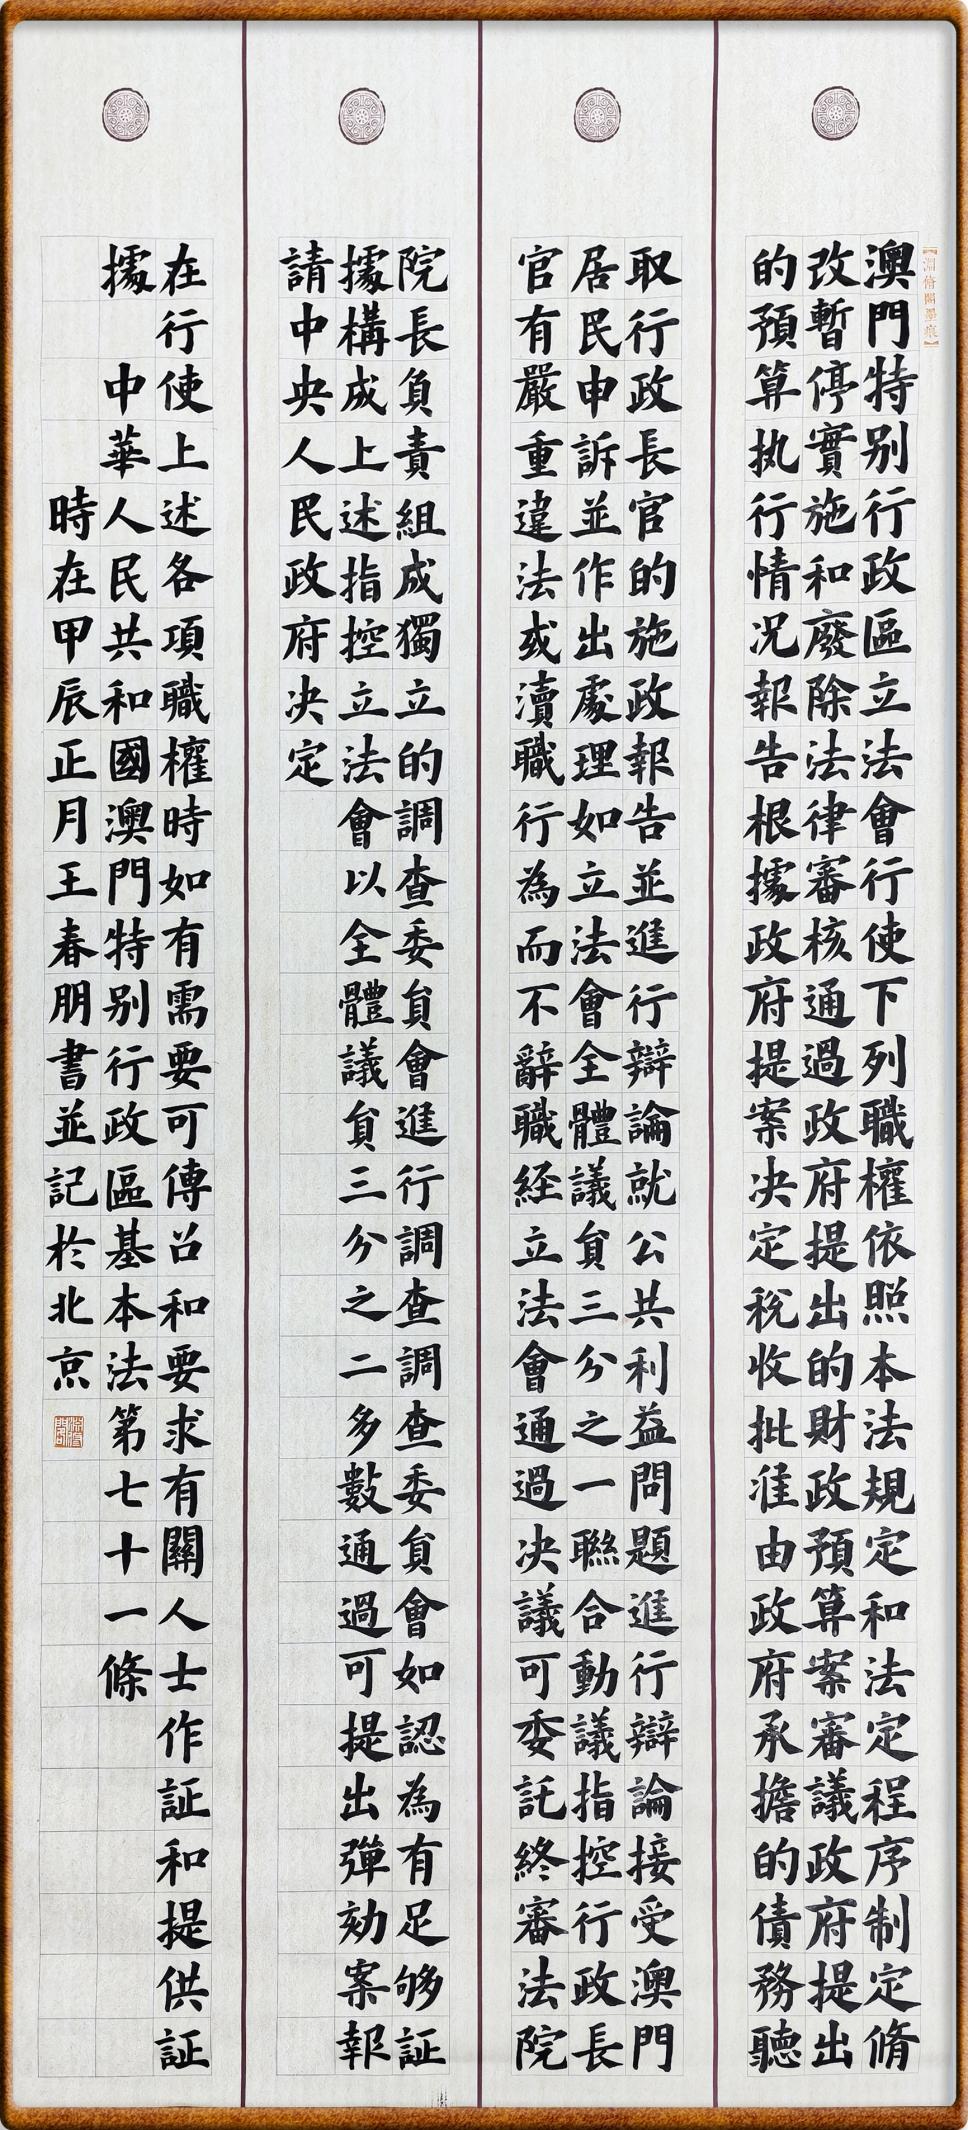 澳門特别行政區立法會行使下列職權依照本法規定和法定程序制定脩
改暫停實施和廢除法律審核通過政府提出的財政預算案審議政府提出
的預算执行情况報告根據政府提案决定稅收批准由政府承擔的債務聽
取行政長官的施政報告並進行辯論就公共利益問題進行辯論接受澳門
居民申訴並作出處理如立法會全體議員三分之一聯合動議指控行政長
官有嚴重違法或瀆職行為而不辭職経立法會通過决議可委託終審法院
院長負責組成獨立的調查委員會進行調查調查委員會如認為有足够証
據構成上述指控立法會以全體議員三分之二多數通過可提出彈劾案報
請中央人民政府决定
在行使上述各項職權時如有需要可傳召和要求有關人士作証和提供証
據 中華人民共和國澳門特别行政區基本法第七十一條
時在甲辰正月王春朋書並記於北京